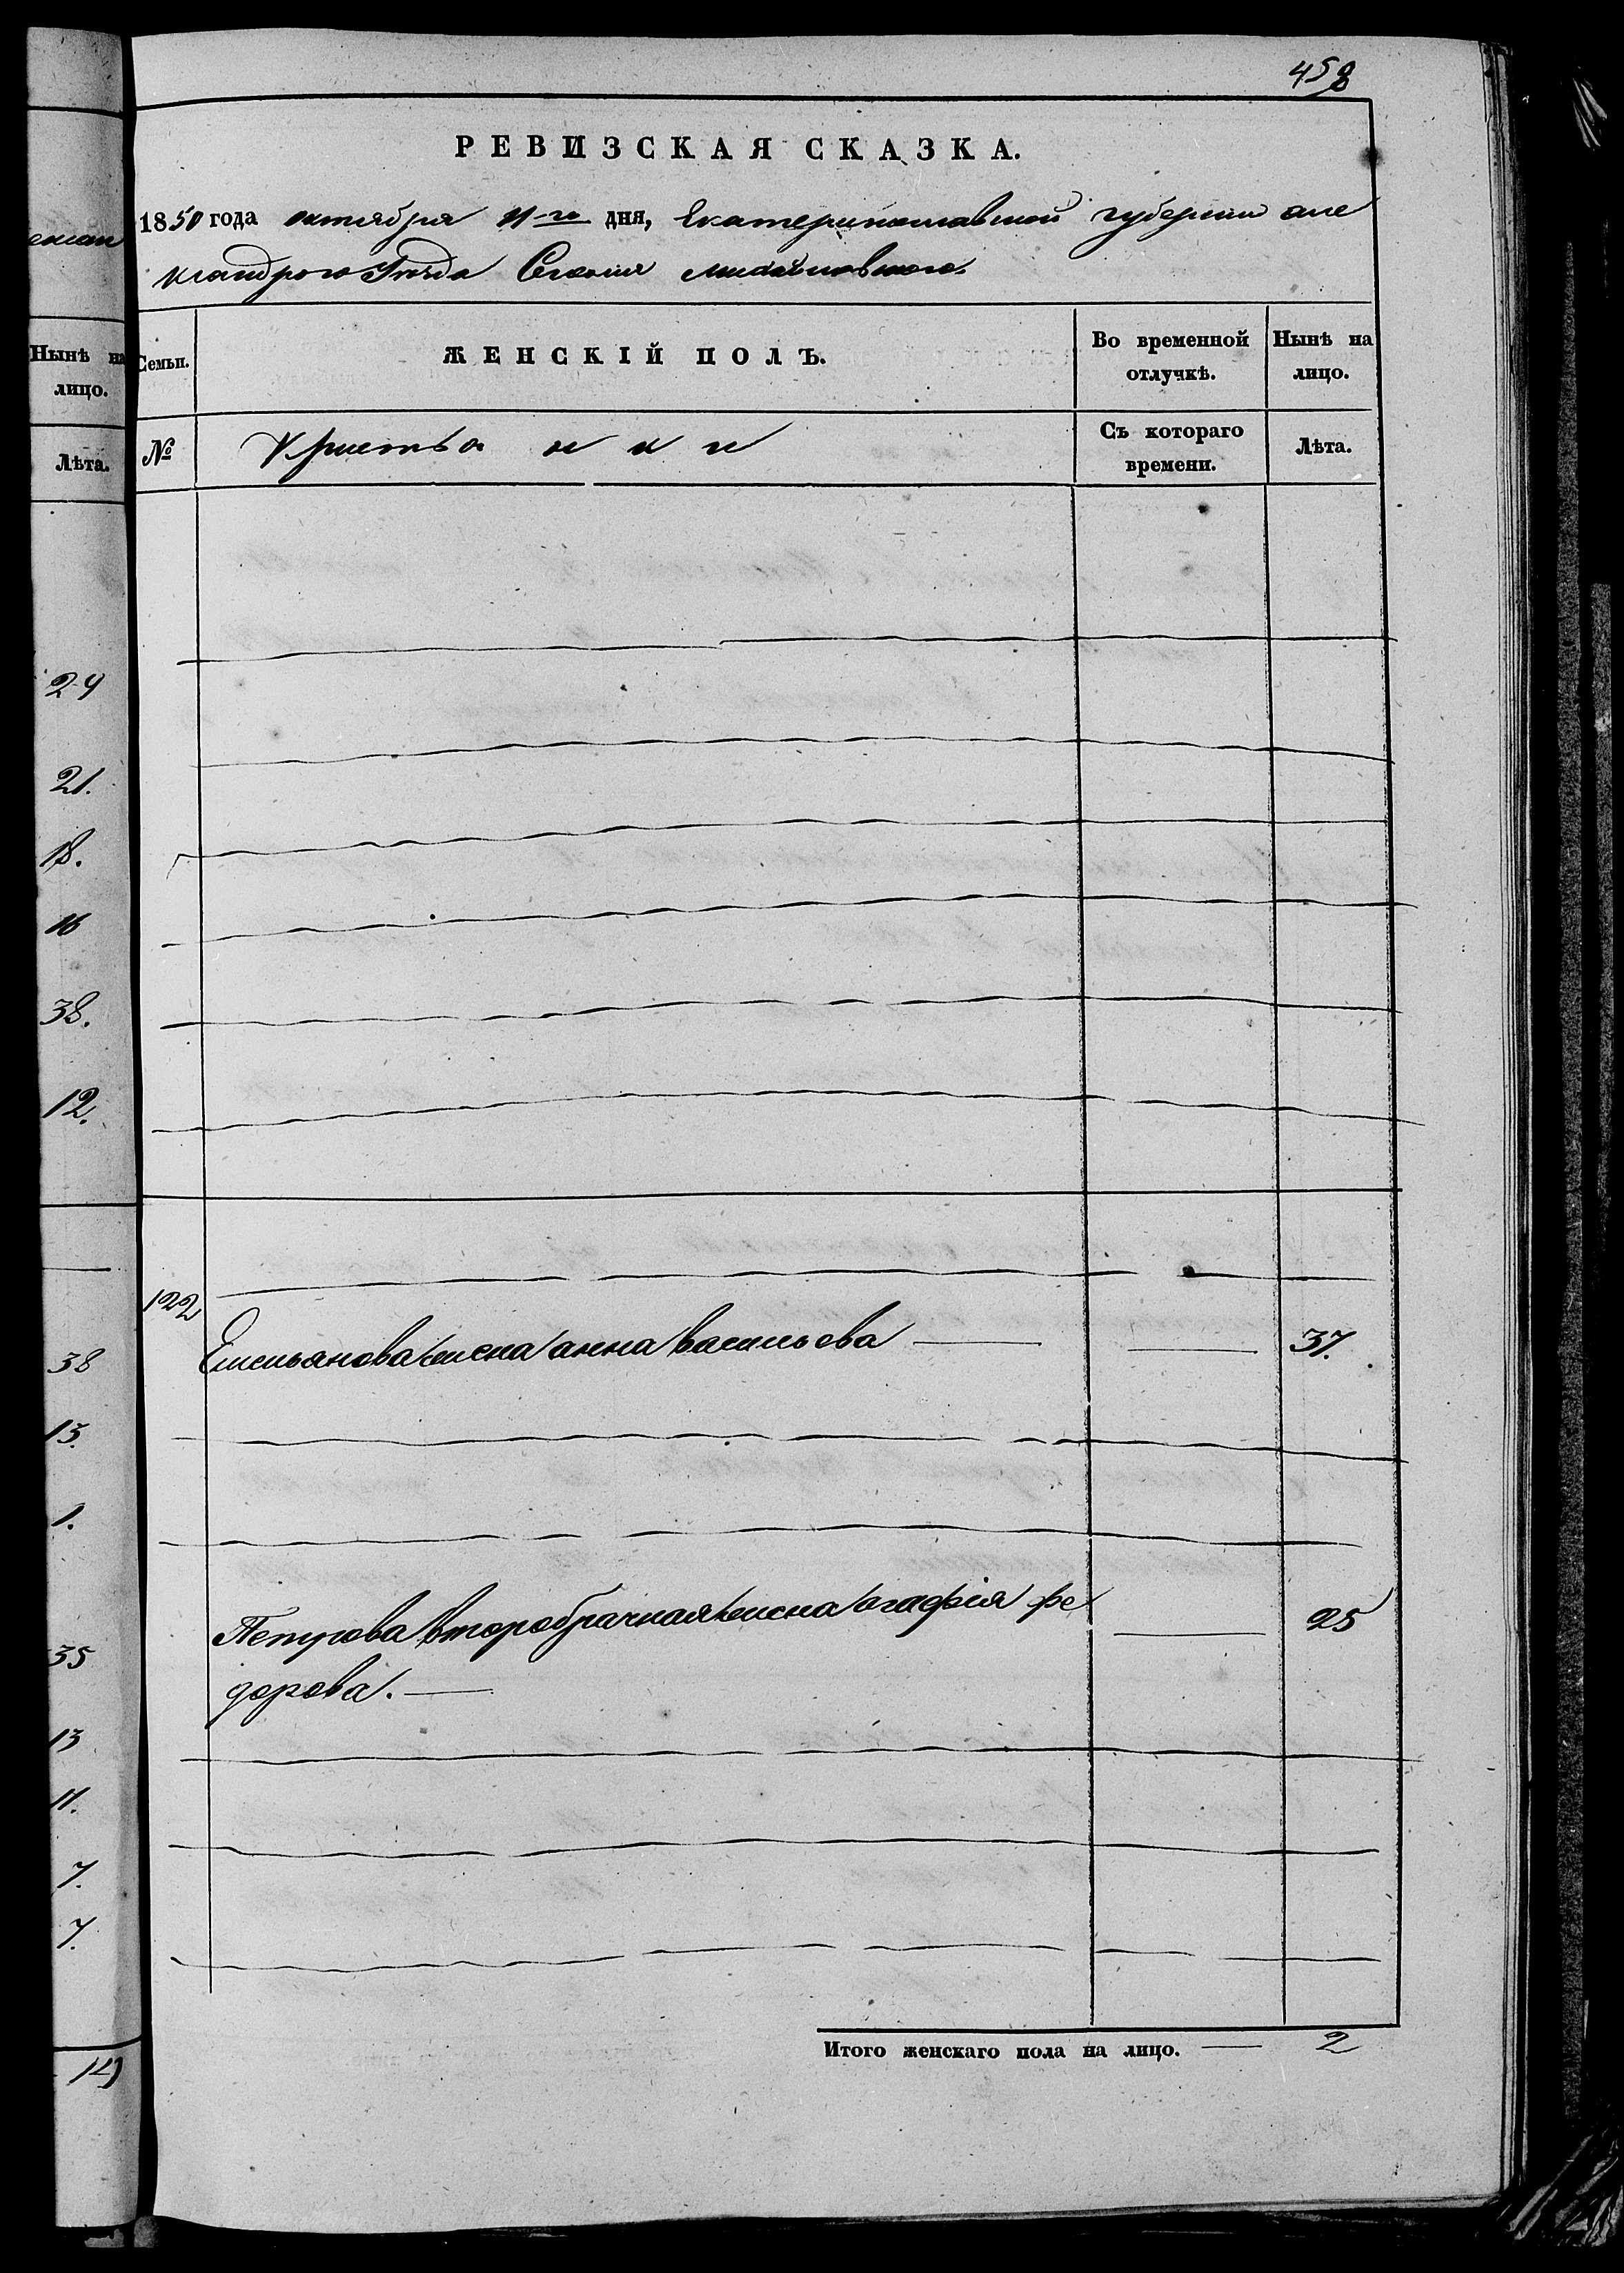 458
РЕВИЗСКАЯ СКАЗКА.
1850 года октября 11-го дня, Екатеринославской губерніи але
ксандрского уѣзда Селенія михайловского
Нынѣ на лицо.
Семьи.
ЖЕНСКІЙ ПОЛЪ.
Во временной отлучкѣ.
Нынѣ на лицо.
Лѣта.
№
Крестьянки
Съ котораго времени.
Лѣта.
24
21.
18.
16
38.
12.
122
Емельянова жена анна васильева — — 37.
38
13.
1.
Петрова второбрачная жена огафія фе — 25
дорова. —
35
13
11.
7.
7.
Итого женскаго пола на лицо. — 2